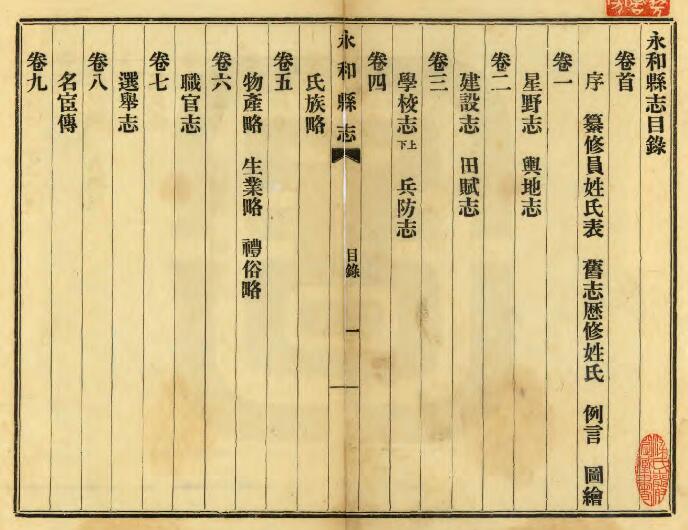 永和縣志目錄
卷首
序 纂修員姓氏表 舊志歷修姓氏 例言 圖繪
卷一
星野志 輿地志
卷二
建設志 田賦志
卷三
學校志上下 兵防志
卷四
永和縣志
目錄
一
氏族略
卷五
物產略 生業略 禮俗略
卷六
職官志
卷七
選舉志
卷八
名宦傳
卷九